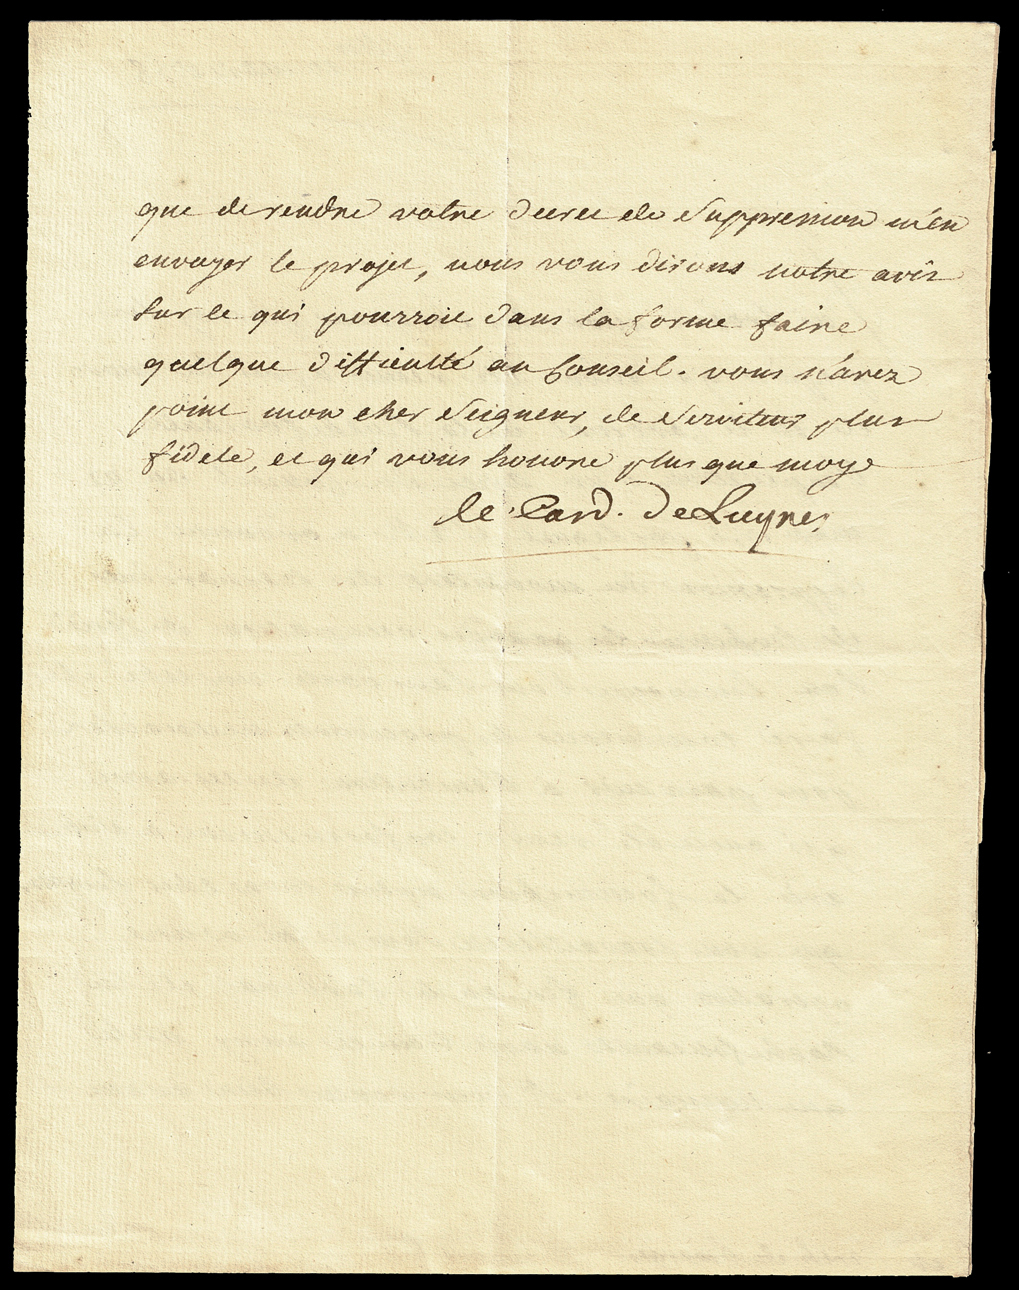 que de rendre votre decret de Suppression m'en
envoyer le projet, nous vous dirons notre avis
Sur ce qui pourroit dans la forme faire
quelque difficulté au Conseil. vous n'avez
point mon cher Seigneur, de Serviteur plus
fidele, et qui vous honore plus que moy
le Card. De Luynes